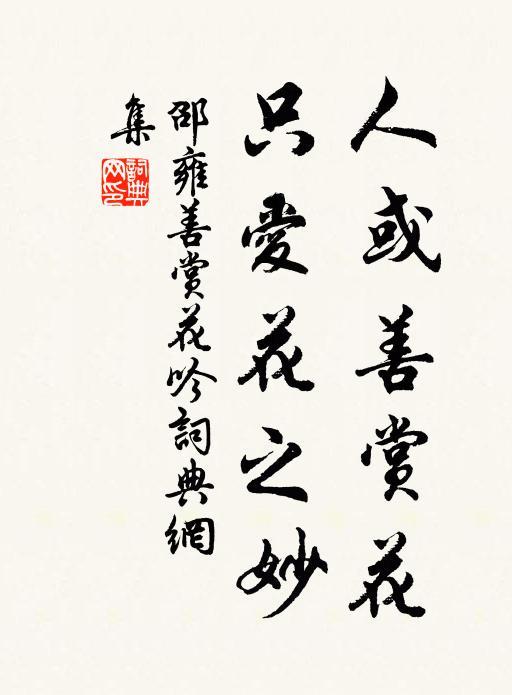 人或善賞花
只愛花之妙
邵雍善賞花吟詞典網
集
詞典
网印